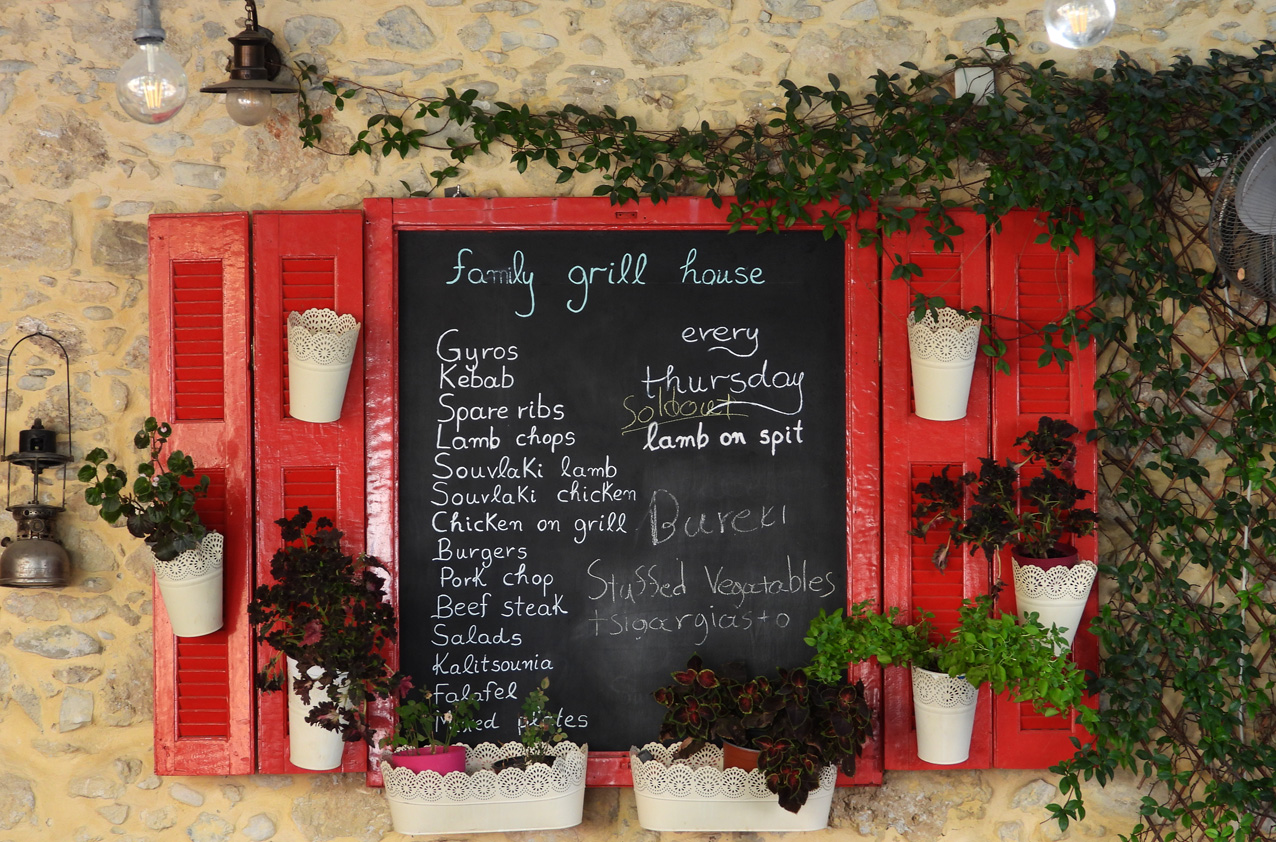 family grill house
Gyros
Kebab
Spare ribs
Lamb chops
Souvlaki lamb
Souvlaki chicken
Chicken on grill
Burgers
Pork chop
Beef steak
Salads
Kalitsounia
Falafel
Mixed plates
every
thursday
Soldout
lamb on spit
Bureki
Stuffed Vegatables
tsigargiasto